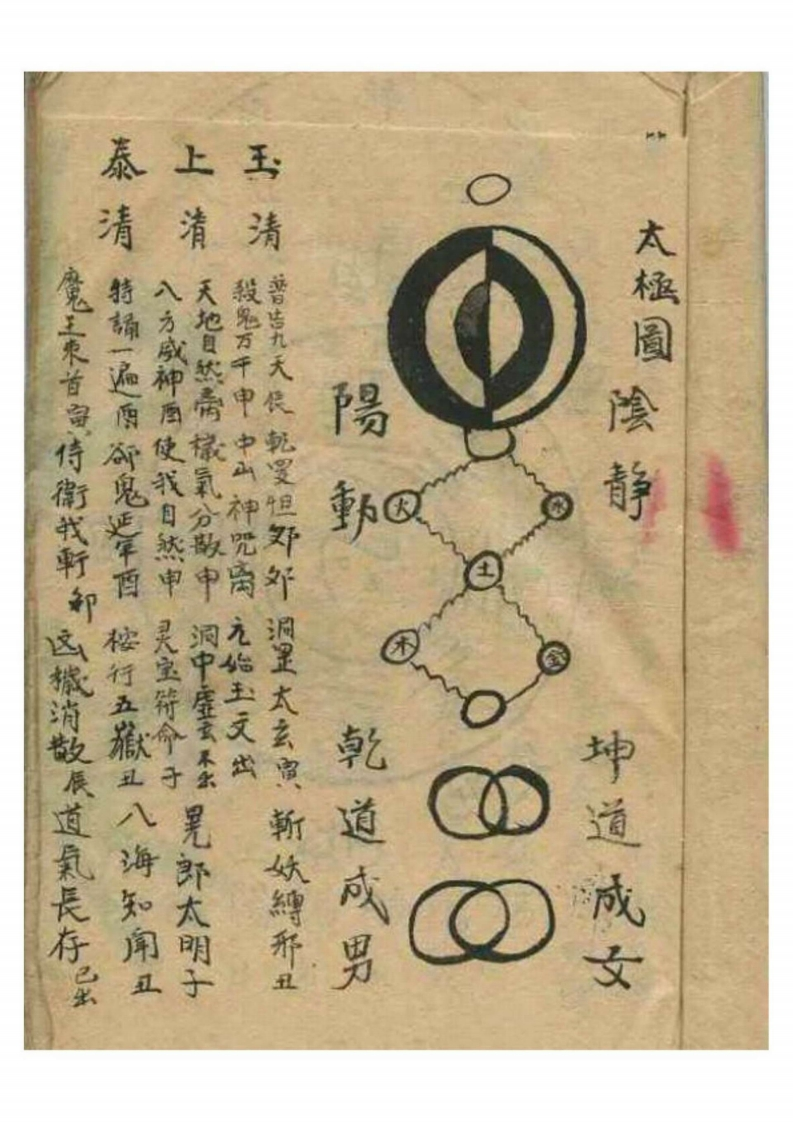 太極圖
陰靜
坤道成女
火
水
土
木
金
陽動
乾道成男
玉清
上清
泰清
普告九天 乾罡怛 洞罡太玄寅 斬妖縛邪丑
殺鬼万千申 中山神咒 元始玉文出
天地自然 穢氣分散申 洞中虛玄 晃郎太明子
八方威神酉 使我自然申 灵宝符命子
持誦一遍酉 却鬼延年酉 桉行五嶽丑 八海知聞丑
魔王束首寅 侍衛我軒卯 凶穢消散辰 道氣長存